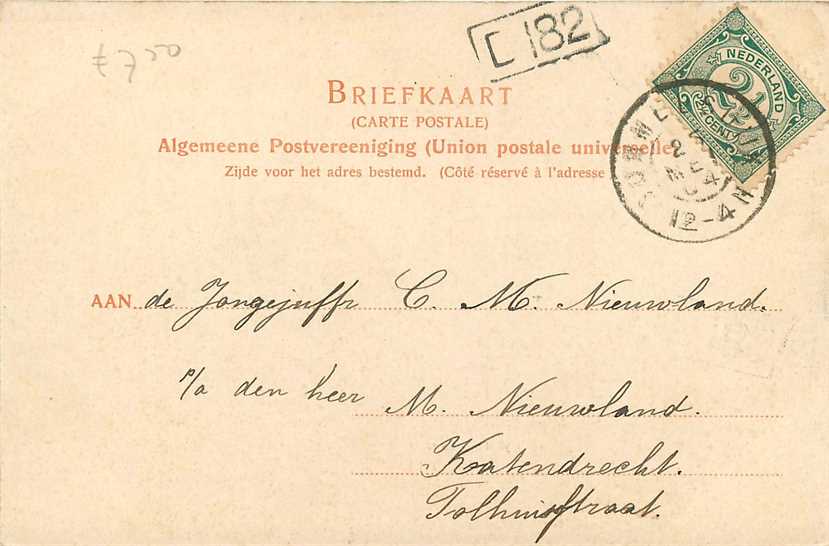 7,50
C 182
NEDERLAND
2½
CENT
BRIEFKAART
(CARTE POSTALE)
Algemeene Postvereeniging (Union postale universelle)
Zijde voor het adres bestemd. (Côté réservé à l'adresse
12-4N
AAN de Jongejuffr C. M. Nieuwland.
p/a den heer M. Nieuwland.
Katendrecht.
Tolhuisstraat.